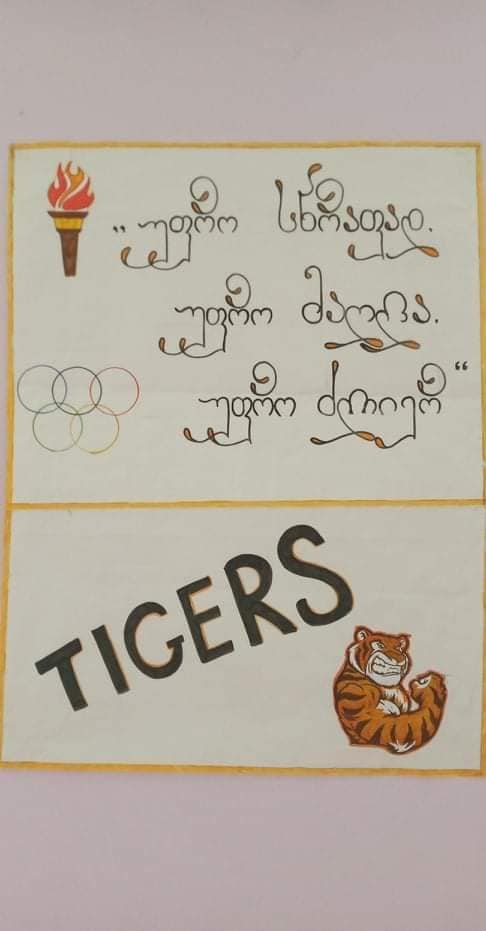 „უფრო სწრაფად.
უფრო მაღლა.
უფრო ძლიერ“
TIGERS